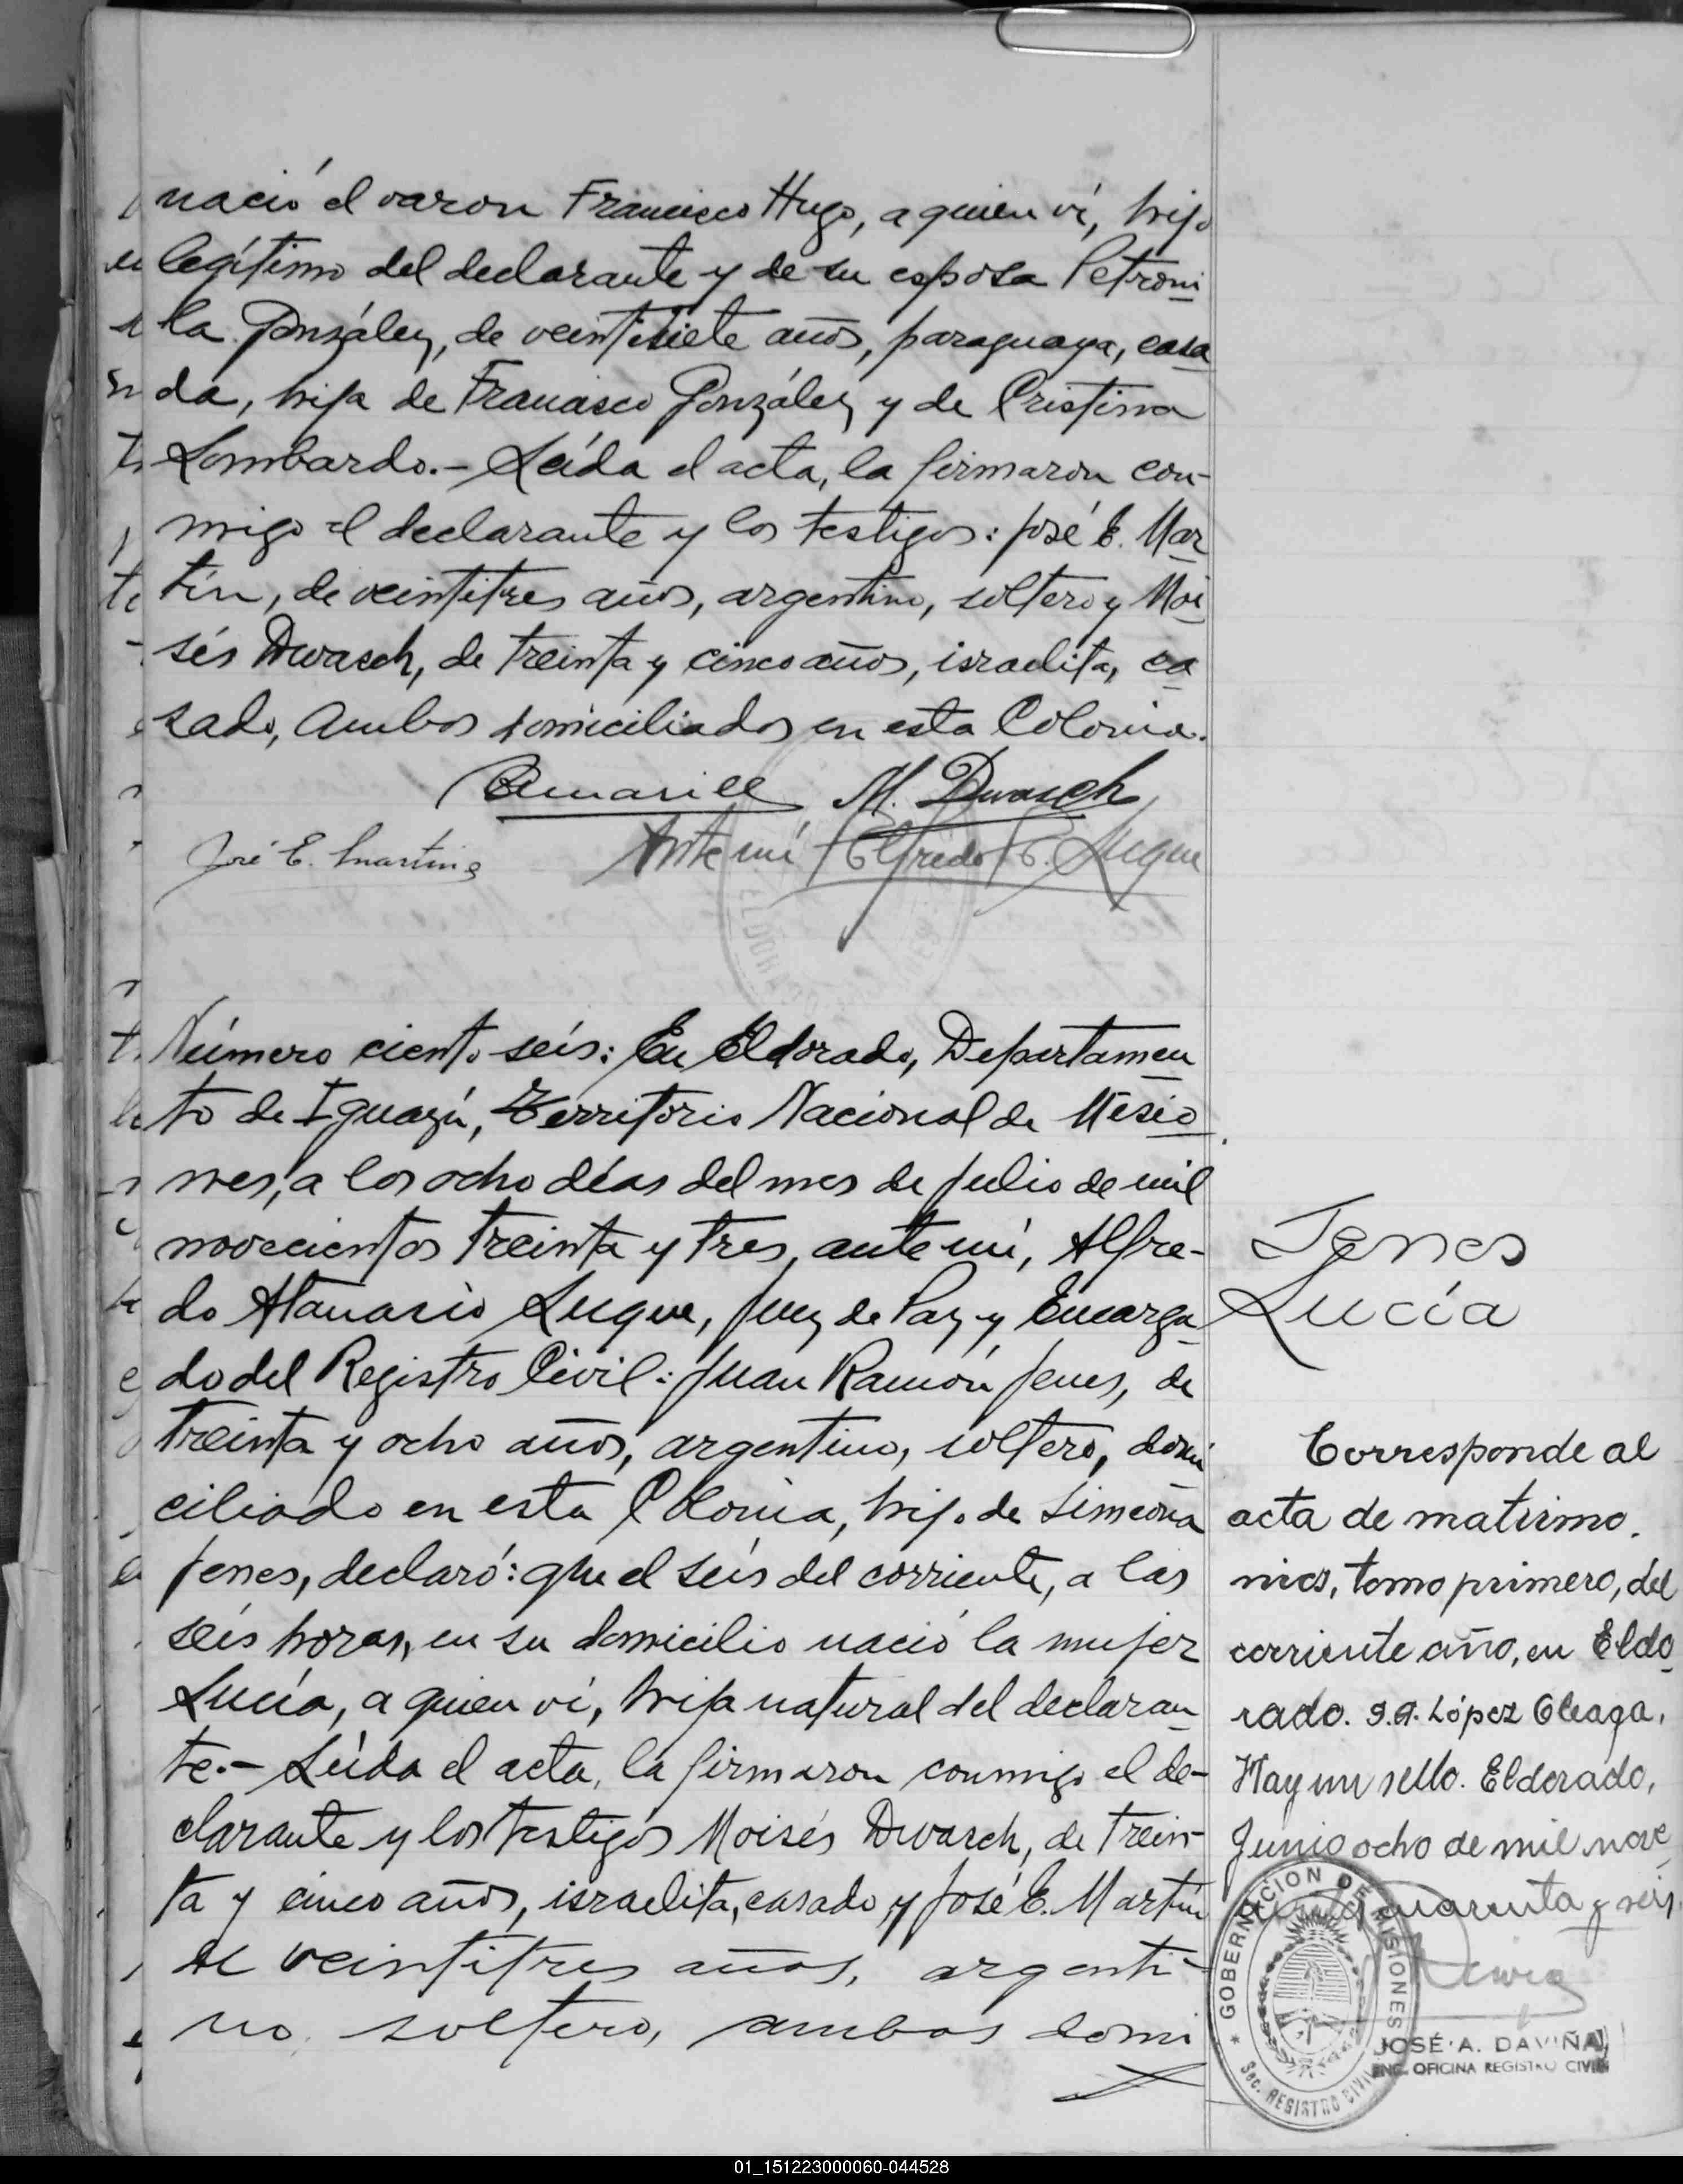 nació el varon Francisco Hugo, a quien ví, hijo
legítimo del declarante y de su esposa Petroni
la González, de veintisiete años, paraguaya, casa
da, hija de Francisco González y de Cristina
Lombardo.- Leída el acta, la firmaron con-
migo el declarante y los testigos: José E. Mar
tín, de veintitres años, argentino, soltero y Moi
sés Dwasch, de treinta y cinco años, israelita, ca
sado, ambos domiciliados en esta Colonia.
M. Dwasch
José E. Martín
Ante mí Alfredo A. Luque
ELDORADO
Número ciento seis: En Eldorado, Departamen
to de Iguazú, Territorio Nacional de Misio
nes, a los ocho días del mes de julio de mil
novecientos treinta y tres, ante mí, Alfre-
do Atanasio Luque, Juez de Paz y Encarga
do del Registro Civil: Juan Ramón Jenes, de
treinta y ocho años, argentino, soltero, domi
ciliado en esta Colonia, hijo de Simeona
Jenes, declaró: que el seis del corriente, a las
seis horas, en su domicilio nació la mujer
Lucía, a quien ví, hija natural del declaran
te.- Leída el acta, la firmaron conmigo el de-
clarante y los testigos Moisés Dwasch, de trein-
ta y cinco años, israelita, casado y José E. Martín
de veintitres años, argenti-
no, soltero, ambos domi
Jenes
Lucía
Corresponde al
acta de matrimo.
nios, tomo primero, del
corriente año, en Eldo
rado. S.A. López Oleaga.
Hay un sello. Eldorado,
Junio ocho de mil nove
cuarenta y seis.
GOBERNACION DE MISIONES
Sec. REGISTRO CIVIL
JOSÉ A. DAVIÑA
ENC. OFICINA REGISTRO CIVIL
01_151223000060-044528